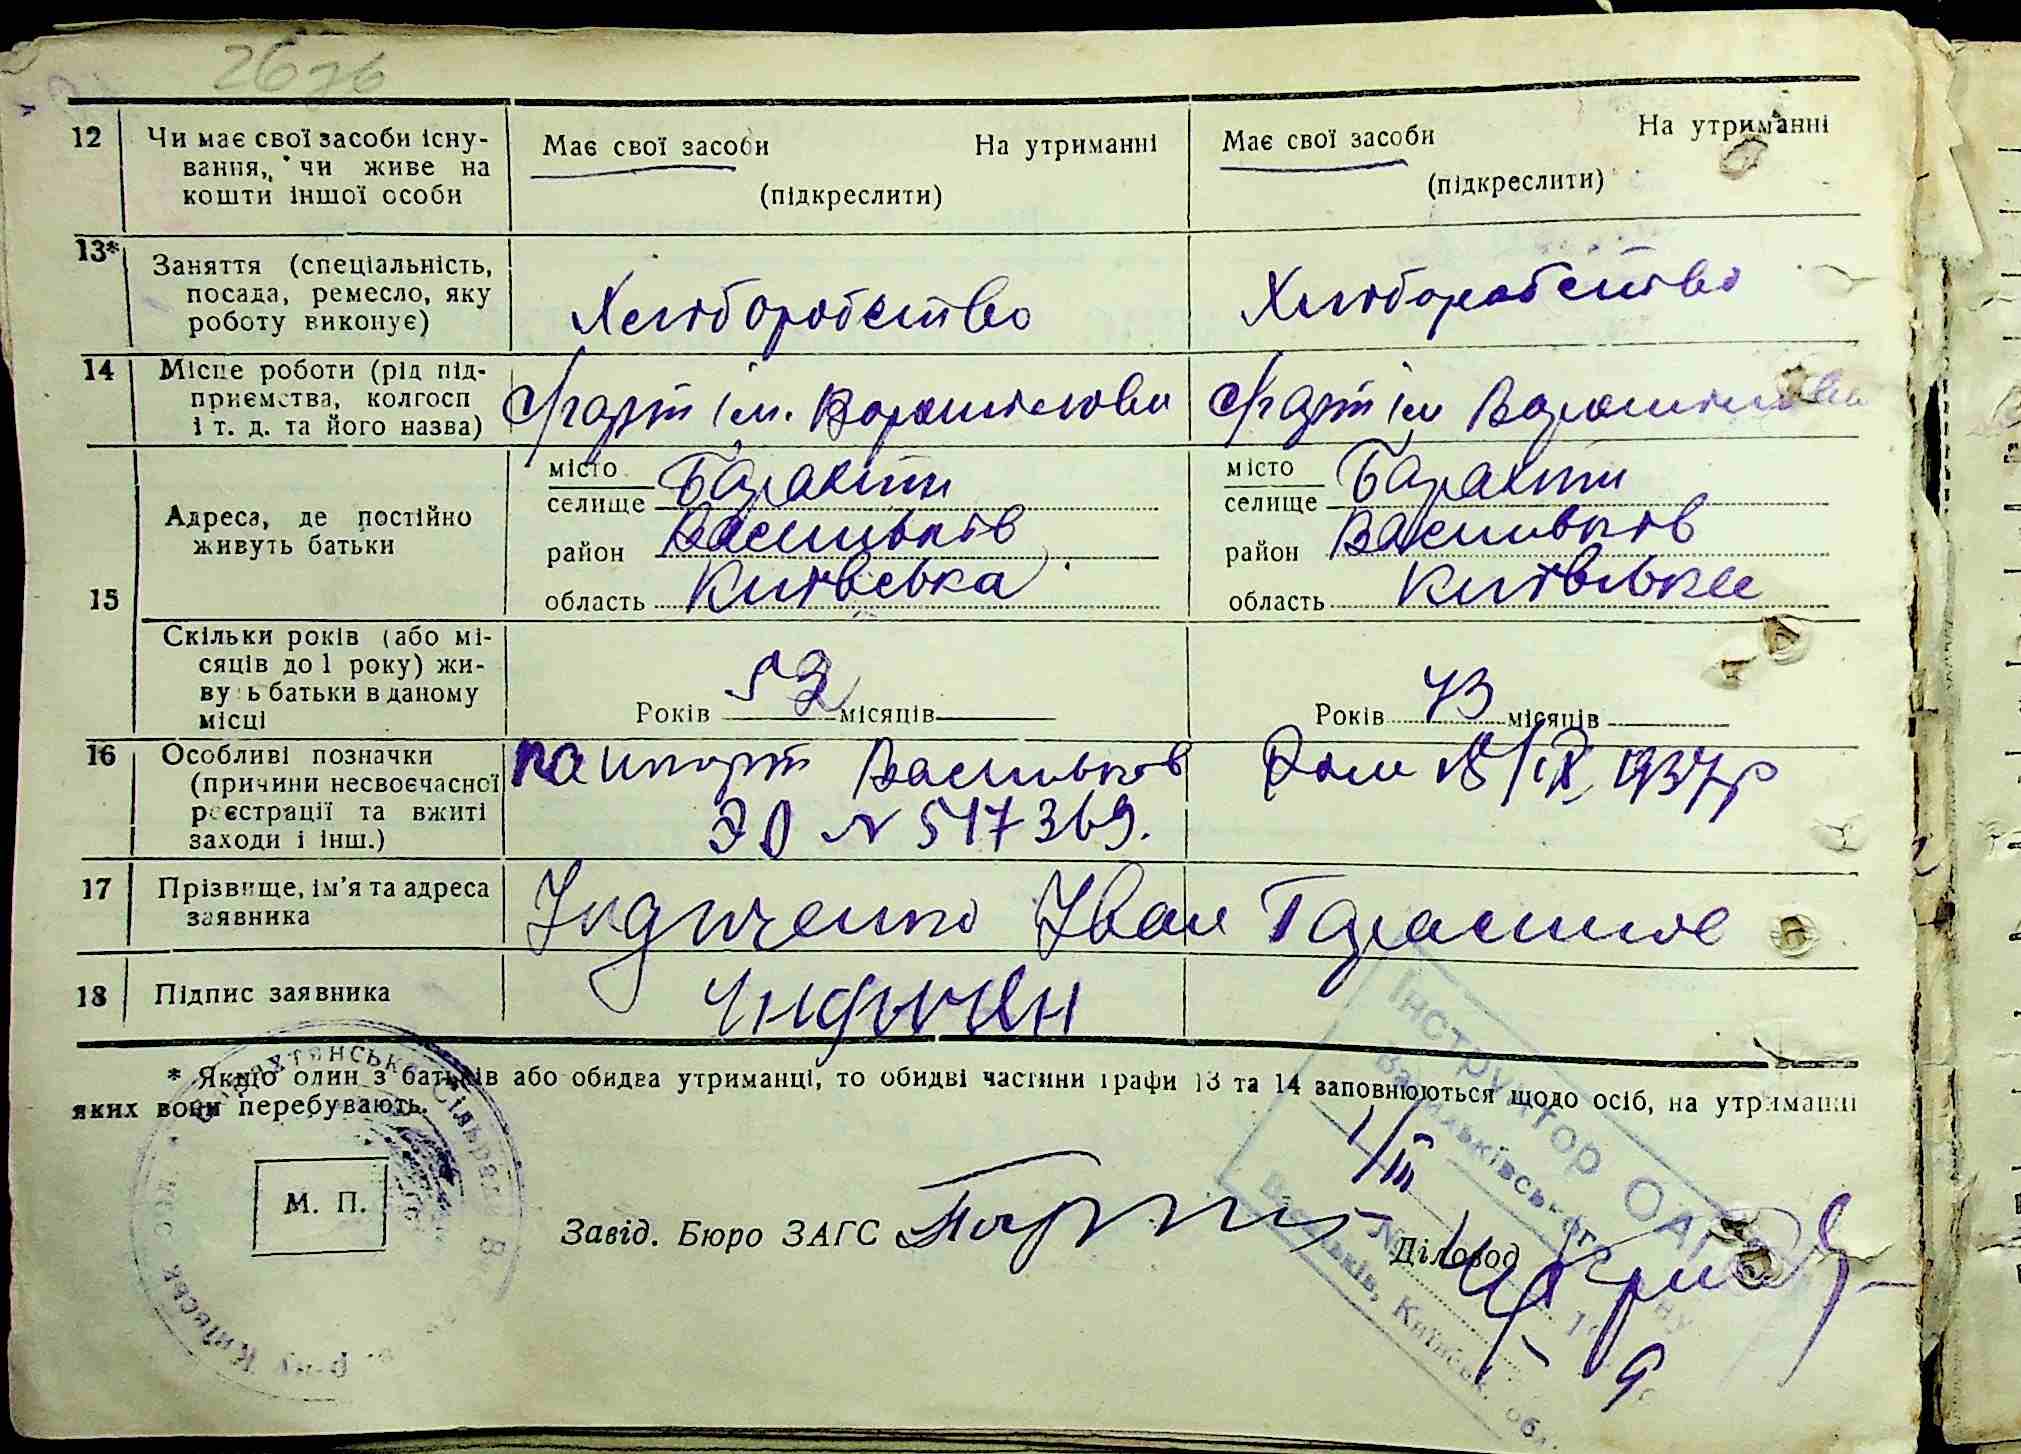 26 зв
12 Чи має свої засоби існу-
вання, чи живе на
кошти іншої особи
Має свої засоби На утриманні
(підкреслити)
Має свої засоби На утриманні
(підкреслити)
13* Заняття (спеціальність,
посада, ремесло, яку
роботу виконує)
Хліборобство
Хліборобство
14 Місце роботи (рід під-
приємства, колгосп
і т. д. та його назва)
Ф/гарт ім. Ворошилова
Ф/гарт ім Ворошилова
15 Адреса, де постійно
живуть батьки
місто
селище Барахти
район Васильків
область Київська
місто
селище Барахти
район Васильків
область Київська
Скільки років (або мі-
сяців до 1 року) жи-
вуть батьки в даному
місці
Років 52 місяців
Років 43 місяців
16 Особливі позначки
(причини несвоєчасної
реєстрації та вжиті
заходи і інш.)
пашпорт Васильков
N 517369.
1937р
17 Прізвище, ім'я та адреса
заявника
Індиченко Іван Гарасимов
18 Підпис заявника
* Якщо один з батьків або обидва утриманці, то обидві частини графи 13 та 14 заповнюються щодо осіб, на утриманні
яких вони перебувають.
М. П.
Завід. Бюро ЗАГС
Діловод
Барахтянська сільрада
р-ну Київськ обл
Інструктор ОАГС
Васильківського
Васильків, Київськ. обл.
1/III